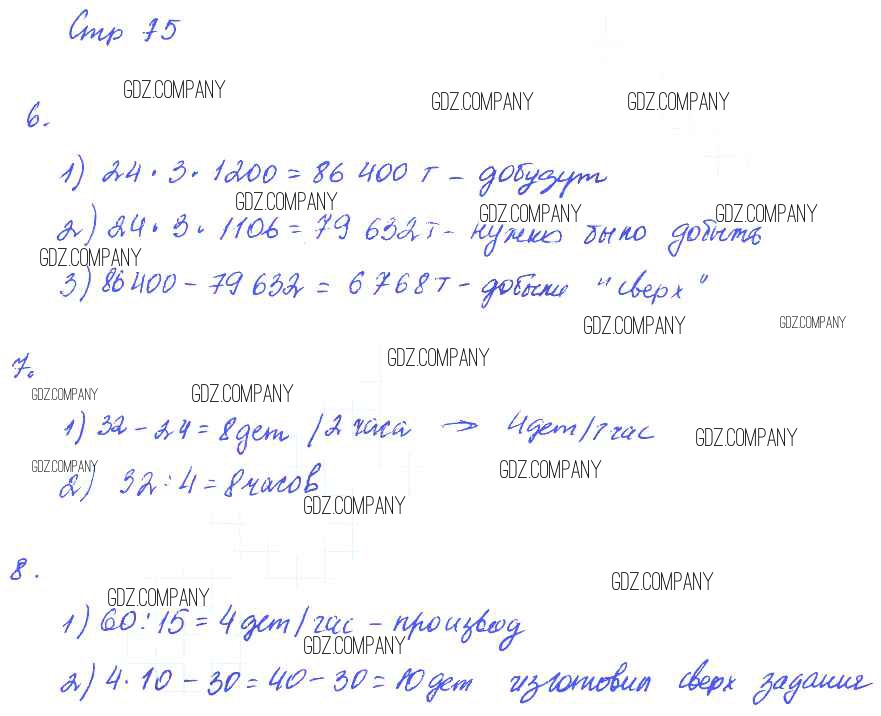 Стр 75
GDZ.COMPANY
GDZ.COMPANY GDZ.COMPANY
6.
1) 24 · 3 · 1200 = 86 400 т – добудут
GDZ.COMPANY GDZ.COMPANY GDZ.COMPANY
2) 24 · 3 · 1106 = 79 632 т - нужно было добыть
GDZ.COMPANY
3) 86400 – 79 632 = 6 768 т – добыли "сверх"
GDZ.COMPANY GDZ.COMPANY
GDZ.COMPANY
7.
GDZ.COMPANY GDZ.COMPANY
1) 32 – 24 = 8 дет / 2 часа → 4 дет / 1 час
GDZ.COMPANY
GDZ.COMPANY GDZ.COMPANY
2) 32 : 4 = 8 часов
GDZ.COMPANY
8.
GDZ.COMPANY
GDZ.COMPANY
1) 60 : 15 = 4 дет / час – производ
GDZ.COMPANY
2) 4 · 10 – 30 = 40 – 30 = 10 дет изготовил сверх задания